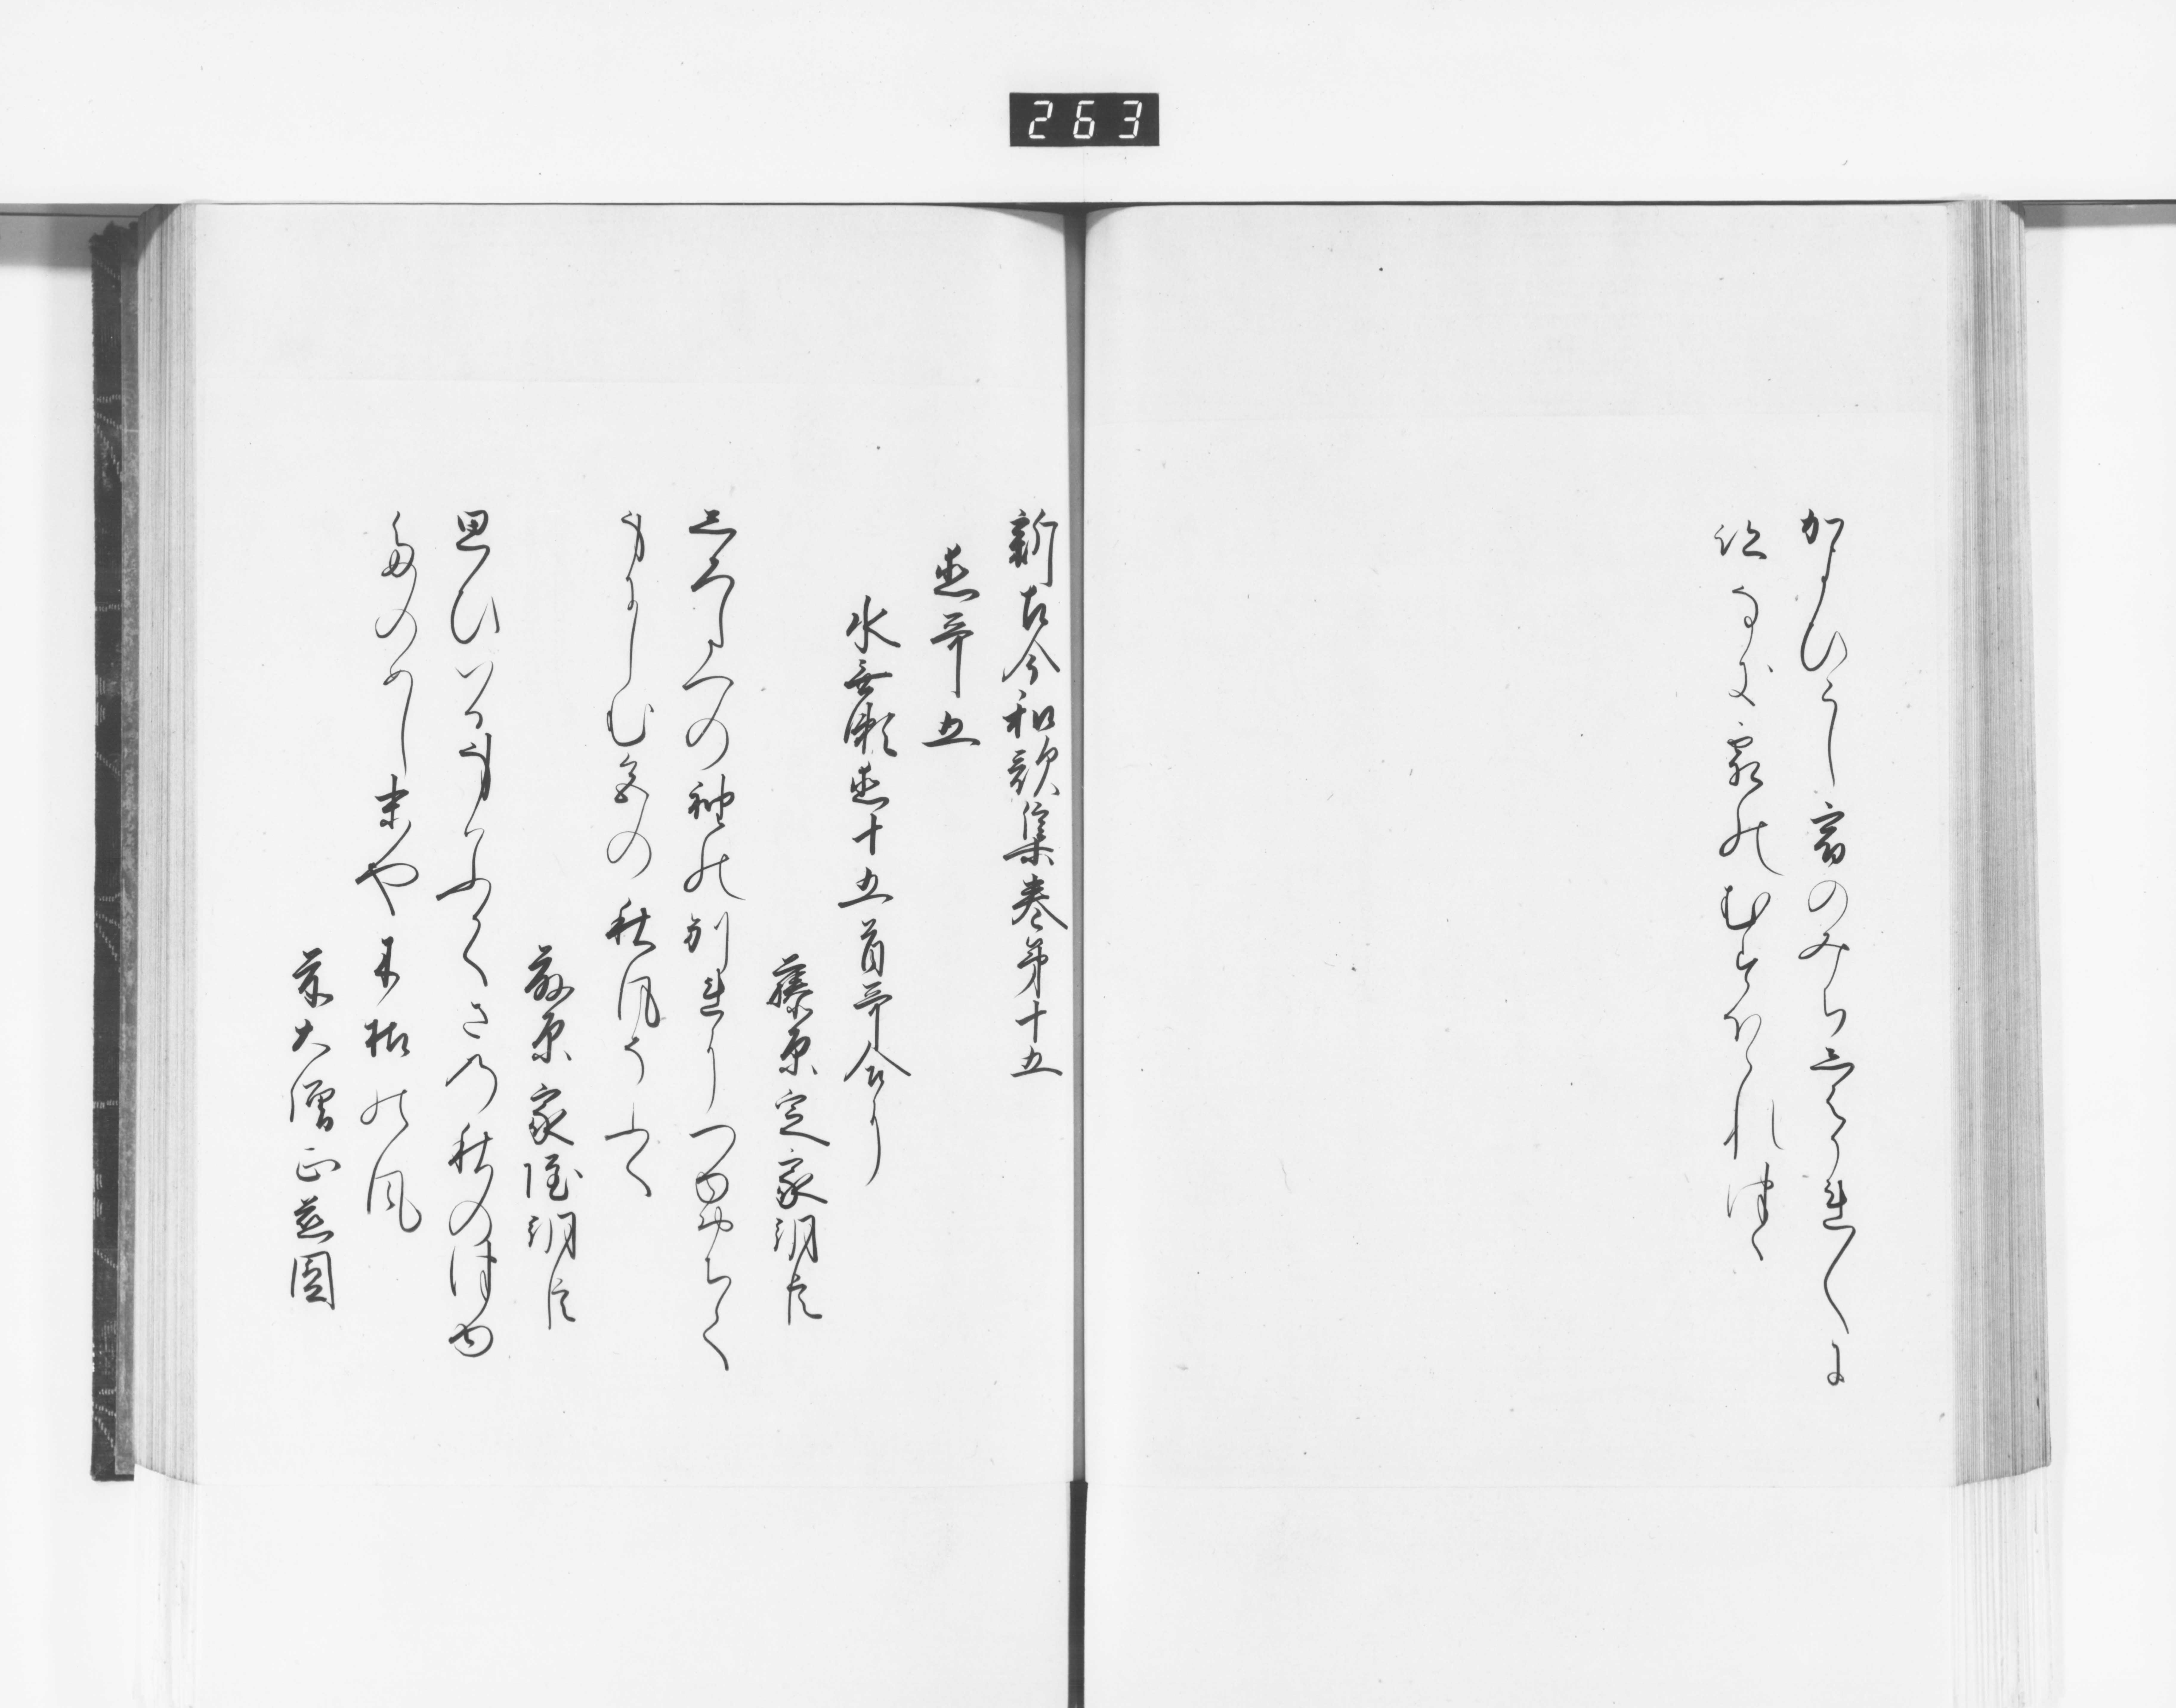 263
かよひこし宿のみちしはかれ〳〵に
跡なき霜のむすほゝれつゝ
新古今和歌集巻第十五
恋哥五
水無瀬恋十五首哥合に
藤原定家朝臣
しろたへの袖の別れにつゆおちて
身にしむ色の秋風そふく
藤原家隆朝臣
思ひいる身はふかくさの秋のつゆ
たのめし末や木枯の風
前大僧正慈円